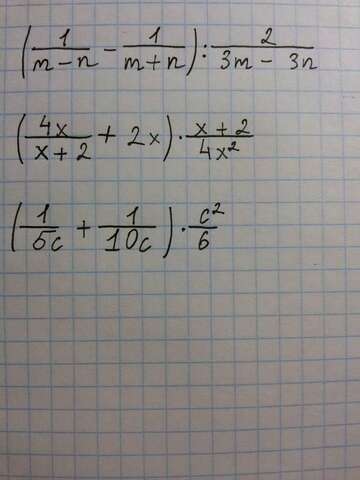 (1/(m-n) - 1/(m+n)) : 2/(3m - 3n)
(4x/(x+2) + 2x) · (x+2)/4x²
(1/5c + 1/10c) · c²/6